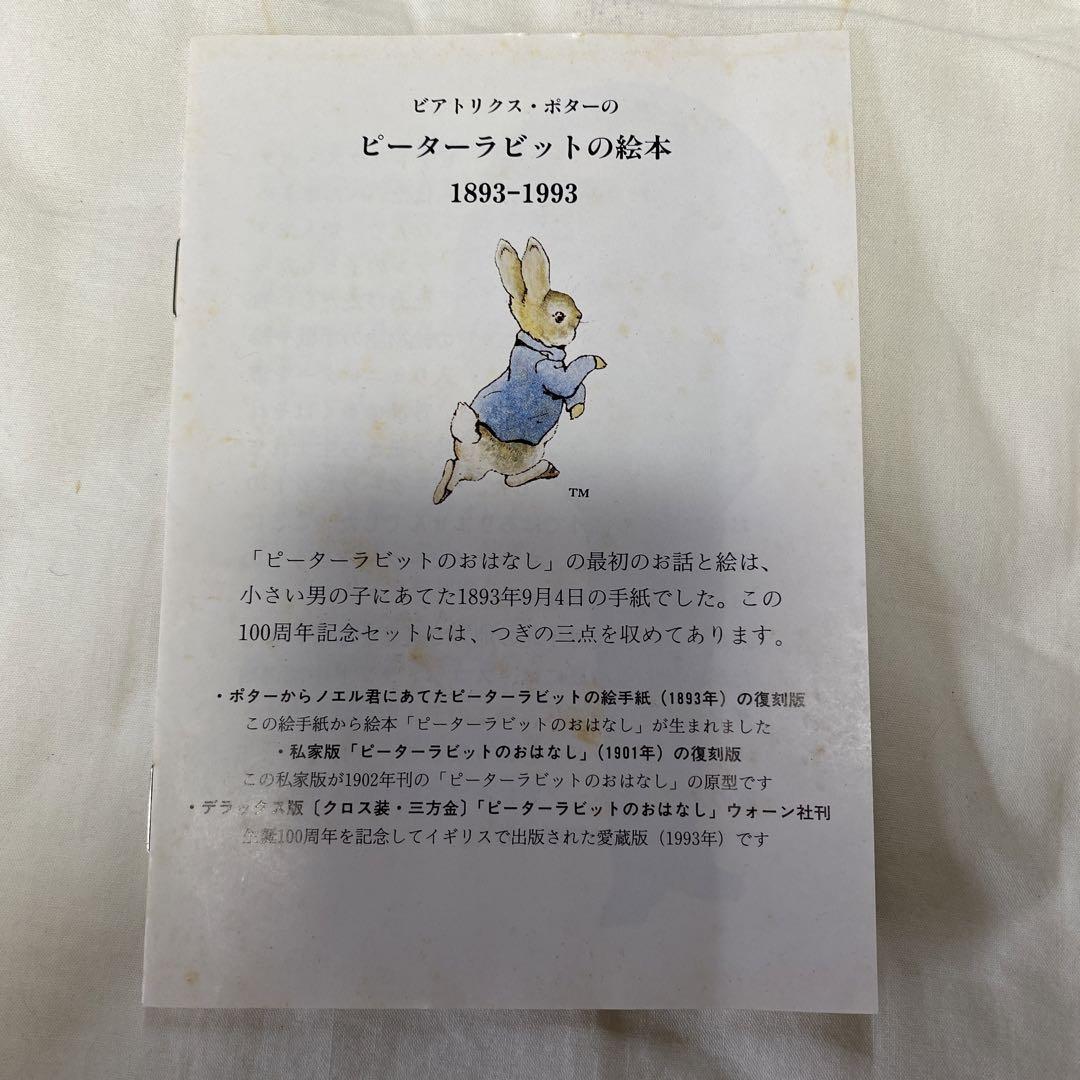 ビアトリクス・ポターの
ピーターラビットの絵本
1893-1993
TM
「ピーターラビットのおはなし」の最初のお話と絵は、
小さい男の子にあてた1893年9月4日の手紙でした。この
100周年記念セットには、つぎの三点を収めてあります。
・ポターからノエル君にあてたピーターラビットの絵手紙（1893年）の復刻版
この絵手紙から絵本「ピーターラビットのおはなし」が生まれました
・私家版「ピーターラビットのおはなし」（1901年）の復刻版
この私家版が1902年刊の「ピーターラビットのおはなし」の原型です
・デラックス版〔クロス装・三方金〕「ピーターラビットのおはなし」ウォーン社刊
生誕100周年を記念してイギリスで出版された愛蔵版（1993年）です